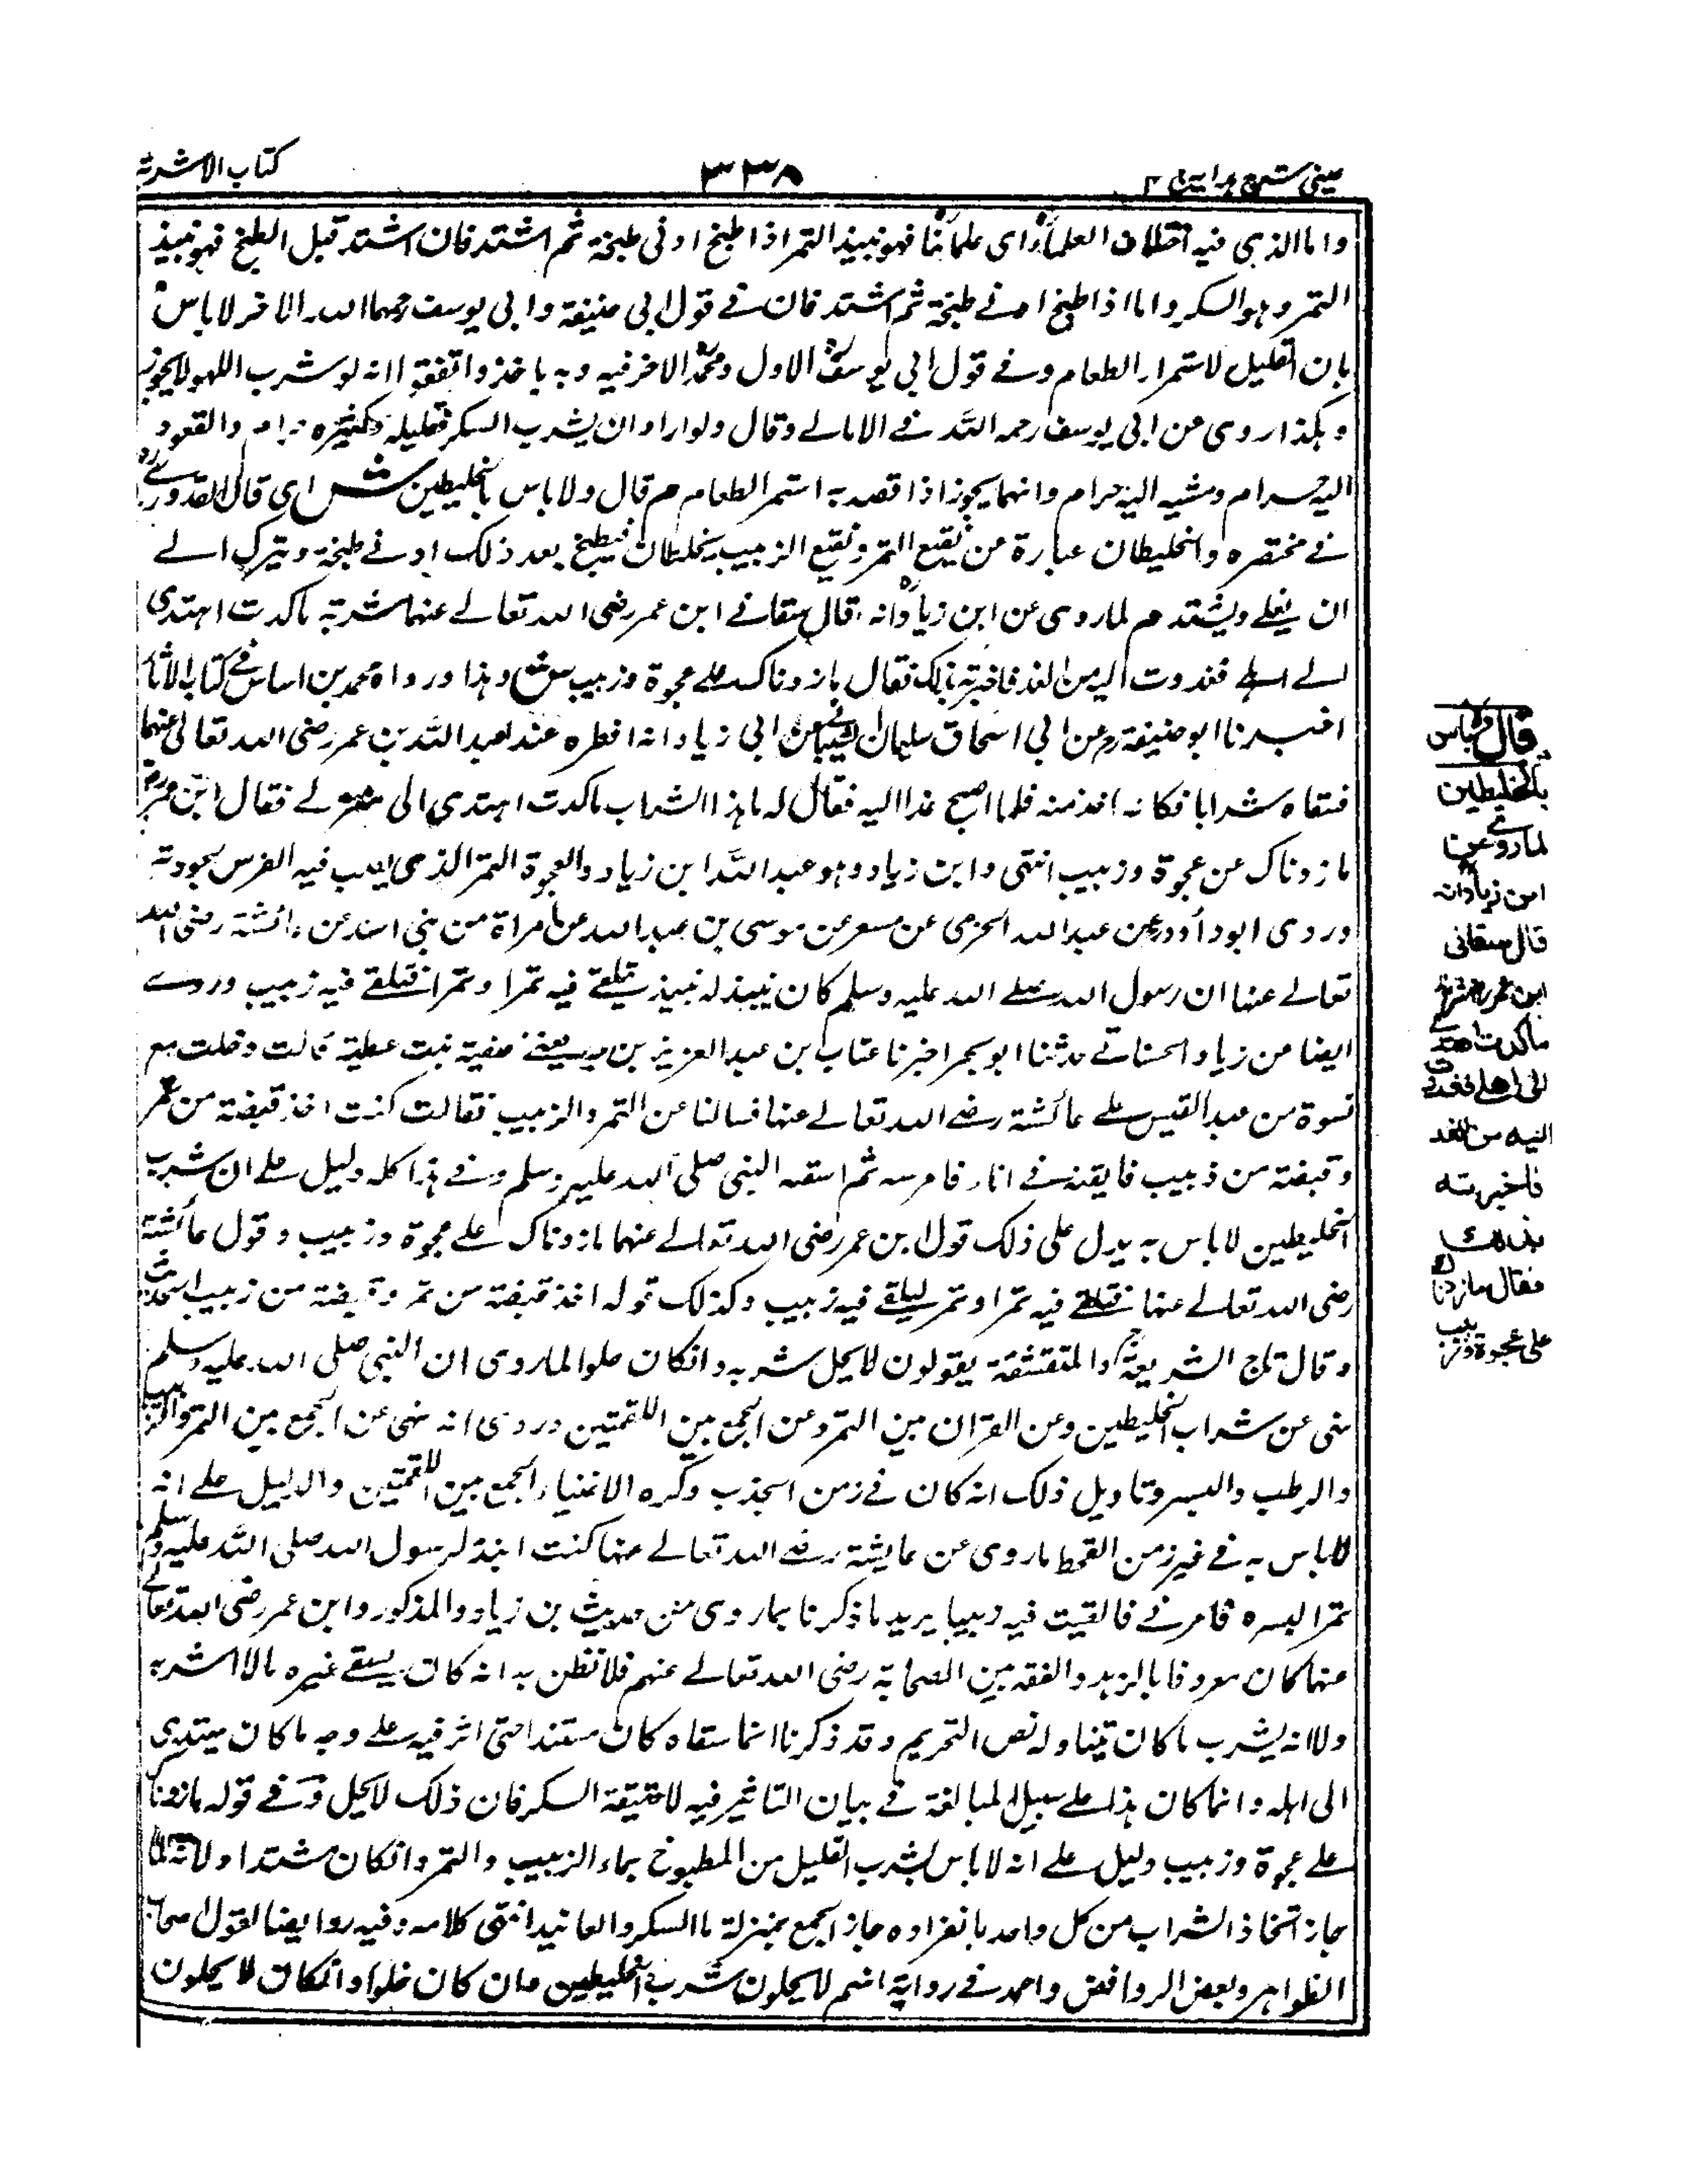 عینی شرح ہدایہ ج ٤
٣٣٨
کتاب الاشربة
واما الذی فیه اختلاف العلماء ای علمائنا فهو نبیذ التمر اذا طبخ ادنی طبخة ثم اشتد فان اشتد قبل الطبخ فهو نبیذ
التمر وهو السکر واما اذا طبخ ادنے طبخة ثم اشتد فان فے قول ابی حنیفة وابی یوسف رحمهما الله الاخر لاباس
بان القلیل لاستمرار الطعام وفے قول ابی یوسف الاول ومحمد الاخر فیه وبه یاخذ واتفقوا انه لو شرب اللهو لایجوز
وهکذا روی عن ابی یوسف رحمه الله فے الامالے وقال ولو اراد ان یشرب السکر فقلیله وکثیره حرام والقعود
الیه حرام ومشیه الیه حرام وانما یجوز اذا قصد به استمر الطعام م قال ولا باس بالخلیطین ش ای قال القدوری
فے مختصره والخلیطان عبارة من نقیع التمر ونقیع الزبیب یخلطان فیطبخ بعد ذلک ادنے طبخة ویترک الے
ان یغلے ویشتد م لما روی عن ابن زیاد انه قال سقانے ابن عمر رضی الله تعالے عنهما شربة ماکدت اهتدی
الے اهلے فغدوت الیه من الغد فاخبرته بذلک فقال مازدناک علے عجوة وزبیب ش وهذا ورواه محمد بن اساس فے کتاب الاثار
اخبرنا ابو حنیفة رح عن ابی اسحاق سلیمان الشیبانی عن ابی زیاد انه افطره عند عبد الله بن عمر رضی الله تعالی عنهما
فسقاه شرابا فکانه اخذ منه فلما اصبح غدا الیه فقال له ما هذا الشراب ماکدت اهتدی الی منزلے فقال ابن عمر
مازدناک عن عجوة وزبیب انتهی وابن زیاد وهو عبد الله ابن زیاد والعجوة التمر الذی یغلب فیه الفرس لجودته
وروی ابو داود عن عبد الله الحرمی عن مسعر عن موسی بن عبد الله عن امراة من بنی اسد عن عائشة رضی الله
تعالے عنها ان رسول الله صلے الله علیه وسلم کان ینبذ له نبیذ فیلقے فیه تمرا وتمرا فیلقے فیه زبیب وروے
ایضا من زیاد الحسنانے حدثنا ابو بحر اخبرنا عتاب بن عبد العزیز بن حدثتنے صفیة بنت عطیة قالت دخلت مع
نسوة من عبد القیس علے عائشة رضے الله تعالے عنها فسالنا عن التمر والزبیب فقالت کنت اخذ قبضة من تمر
وقبضة من ذبیب فایقنه فے اناء فامرسه ثم اسقه النبی صلی الله علیه وسلم وفے هذا کله دلیل علے ان شرب
الخلیطین لاباس به یدل علی ذلک قول ابن عمر رضی الله تعالے عنهما مازدناک علے عجوة وزبیب وقول عائشة
رضی الله تعالے عنها فیلقے فیه تمرا وتمر لیلقے فیه زبیب وکذلک قوله اخذ قبضة من تمر وقبضة من زبیب الحدیث
وقال تاج الشریعة والمتقشفة یقولون لایحل شربه وانکان حلوا لما روی ان النبی صلی الله علیه وسلم
نهی عن شراب الخلیطین وعن القران بین التمر وعن الجمع بین اللقمتین وروی انه نهی عن الجمع بین التمر والزبیب
والرطب والبسر وتاویل ذلک انه کان فے زمن الجذب وکره الاغنیاء الجمع بین اللقمتین والدلیل علے انه
لاباس به فے غیر زمن القحط ماروی عن عایشة رضے الله تعالے عنها کنت انبذ لرسول الله صلی الله علیه وسلم
تمرا البسره فامرنے فالقیت فیه زبیبا یرید ما ذکرنا بماروی من حدیث بن زیاد والمذکور وابن عمر رضی الله تعالے
عنهما کان معروفا بالزهد والفقه بین الصحابة رضی الله تعالے عنهم فلا تظن به انه کان یسقے غیره بالا اشربه
ولا انه یشرب ماکان تیناوله نص التحریم وقد ذکرنا انما سقاه کان مشتدا حتی اثر فیه علے وجه ماکان یهتدی
الی اهله وانما کان هذا علے سبیل المبالغة فے بیان التاثیر فیه لاحقیقة السکر فان ذلک لایحل وفے قوله مازدناک
علے عجوة وزبیب دلیل علے انه لاباس بشرب القلیل من المطبوخ بماء الزبیب والتمر وانکان مشتدا ولانه لما
جاز اتخاذ الشراب من کل واحد بانفراده جاز الجمع بمنزلة ماالسکر والفانید انتهی کلامه وفیه روا یضا لقول اصحاب
الظواهر وبعض الروافض واحمد فے روایة انهم لایحلون شرب الخلیطین وان کان حلوا وانکان لایحلون
قال ولاباس
بالخلیطین
لماروے عن
ابن زیاد انه
قال سقانی
ابن عمر رض شربة
ماکدت اهتدے
الی اهلے فغدوت
الیه من الغد
فاخبرته
بذلک
فقال مازدناک
علی عجوة وزبیب